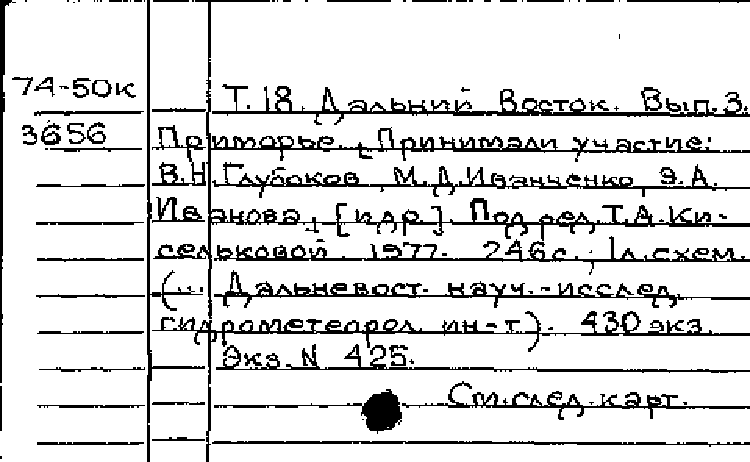 74-50к
Т. 18. Дальний Восток. Вып. 3.
3656
Приморье. [Принимали участие:
В.Н. Глубоков, М.Д. Иванченко, Э.А.
Иванова, [и др.]. Под ред. Т.А. Ки-
сельковой. 1977. 246 с.; 1 л. схем.
(... Дальневост. науч.-исслед.
гидрометеорол. ин-т). 430 экз.
Экз. N 425.
См. след. карт.